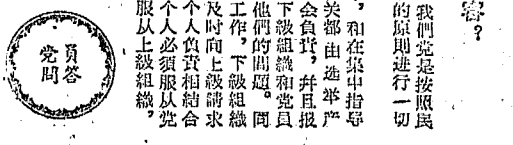 容？
我們党是按照民
的原則进行一切
，和在集中指导
关都由选举产
会負責，并且报
下級組織和党員
他們的問題。同
工作，下級組織
及时向上級請求
个人負責相結合
个人必須服从党
服从上級組織，
党員
問答